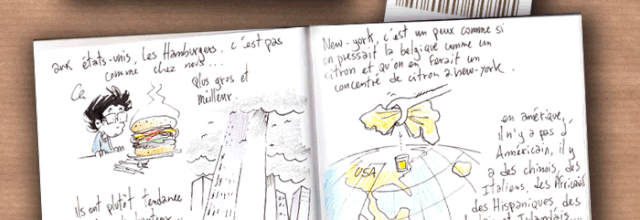 aux états-unis, les Hamburgers, c'est pas
comme chez nous...
Plus gros et
meilleur.
Ils ont plutôt tendance
New-york, c'est un peux comme si
on pressait la belgique comme un
citron et qu'on en ferait un
concentré de citron a new-york.
USA
en amérique,
il n'y a pas d'
Américain, il y
a des chinois, des
Italiens, des Africains
des Hispaniques, des